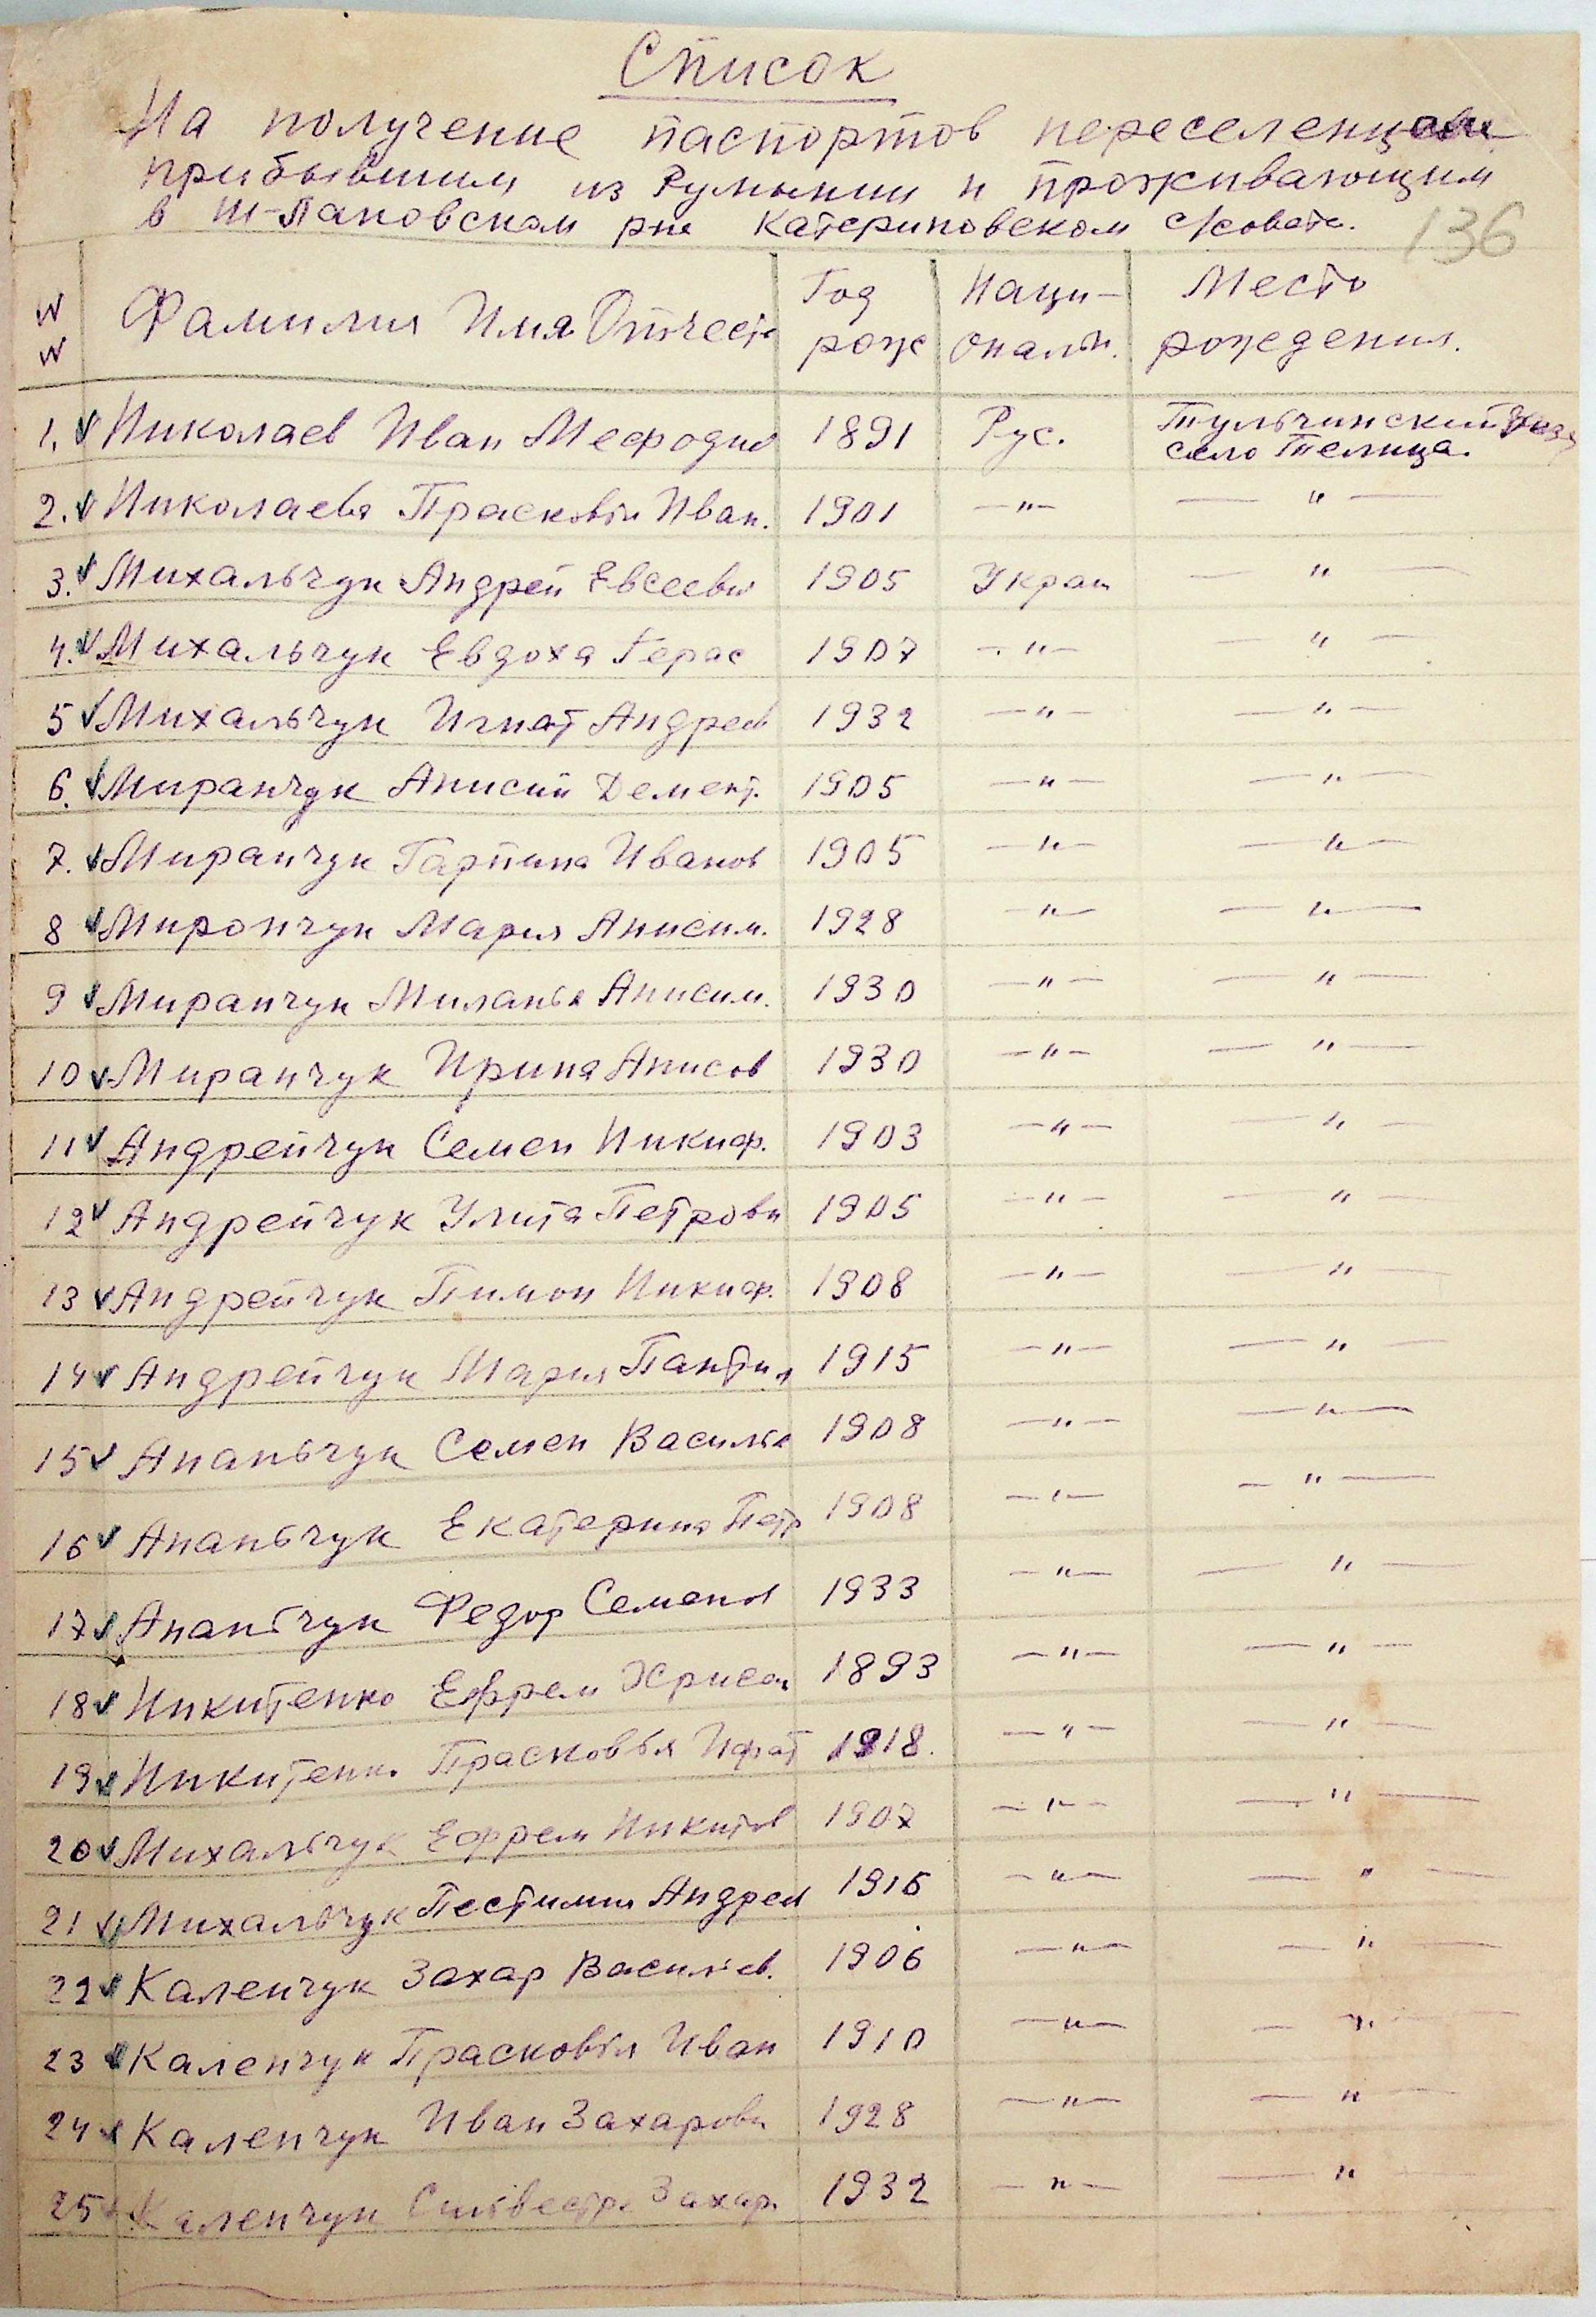 Список
На получение паспортов переселенцам
прибывшим из Румынии и проживающим
в Ш-Лановском рне Катериновском с/совете.
136
№ № Фамилия Имя Отчест Год рожд Наци-ональн. Место рождения.
1. Николаев Иван Мефодив 1891 Рус. Тульчинский уезд
село Телица.
2. Николаева Прасковья Иван. 1901 —"— —"—
3. Михальчук Андрей Евсееви 1905 Украи —"—
4. Михальчук Евдоха Герас 1907 —"— —"—
5 Михальчук Игнат Андреев 1932 —"— —"—
6. Миранчук Анисий Демент. 1905 —"— —"—
7. Миранчук Гарпина Иванов 1905 —"— —"—
8 Мирончук Мария Анисим. 1928 —"— —"—
9 Миранчук Миланья Анисим. 1930 —"— —"—
10 Миранчук Ирина Анисов 1930 —"— —"—
11 Андрейчук Семен Никиф. 1903 —"— —"—
12 Андрейчук Улита Петровн 1905 —"— —"—
13 Андрейчук Пимон Никиф. 1908 —"— —"—
14 Андрейчук Мария Пантил 1915 —"— —"—
15 Ананьчук Семен Василье 1908 —"— —"—
16 Ананьчук Екатерина Петр 1908 —"— —"—
17 Ананьчук Федор Семенов 1933 —"— —"—
18 Никитенко Ефрем Хрисан 1893 —"— —"—
19 Никитенко Прасковья Ипат 1918. —"— —"—
20 Михальчук Ефрем Никитов 1907 —"— —"—
21 Михальчук Пестимия Андреев 1916 —"— —"—
22 Каленчук Захар Васильев. 1906 —"— —"—
23 Каленчук Прасковья Иван 1910 —"— —"—
24 Каленчук Иван Захарови 1928 —"— —"—
25 Каленчук Сильвестр Захар. 1932 —"— —"—